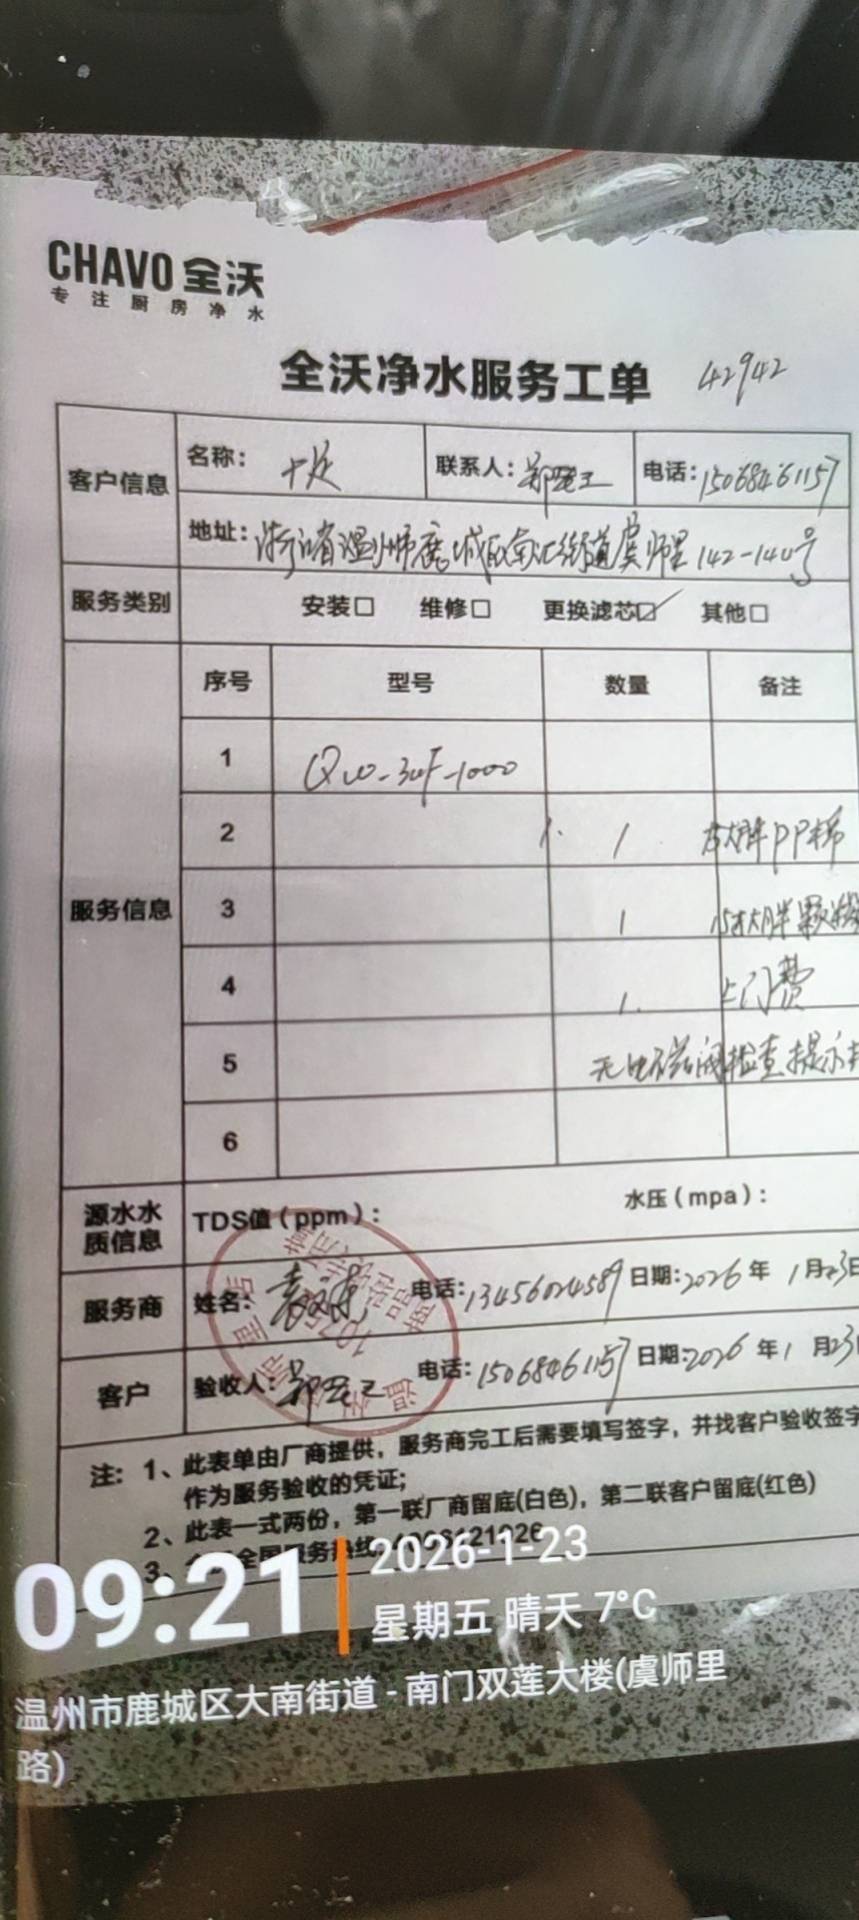 CHAVO 全沃
专注厨房净水
全沃净水服务工单 42942
客户信息 名称: 联系人: 郑 电话: 15068461157
地址: 浙江省温州市鹿城区南汇街道虞师里142-144号
服务类别 安装□ 维修□ 更换滤芯☑ 其他□
服务信息 序号 型号 数量 备注
1 QW-3UF-1000
2 1 大胖PP棉
3 1 大胖颗粒
4 1. 上门费
5 无电磁阀检查提示
6
源水水质信息 TDS值(ppm): 水压(mpa):
服务商 姓名: 电话: 13456024589 日期: 2026年1月23日
客户 验收人: 郑 电话: 15068461157 日期: 2026年1月23日
注: 1、此表单由厂商提供，服务商完工后需要填写签字，并找客户验收签字
作为服务验收的凭证;
2、此表一式两份，第一联厂商留底(白色)，第二联客户留底(红色)
3、全国服务热线
09:21 2026-1-23
星期五 晴天 7°C
温州市鹿城区大南街道-南门双莲大楼(虞师里
路)